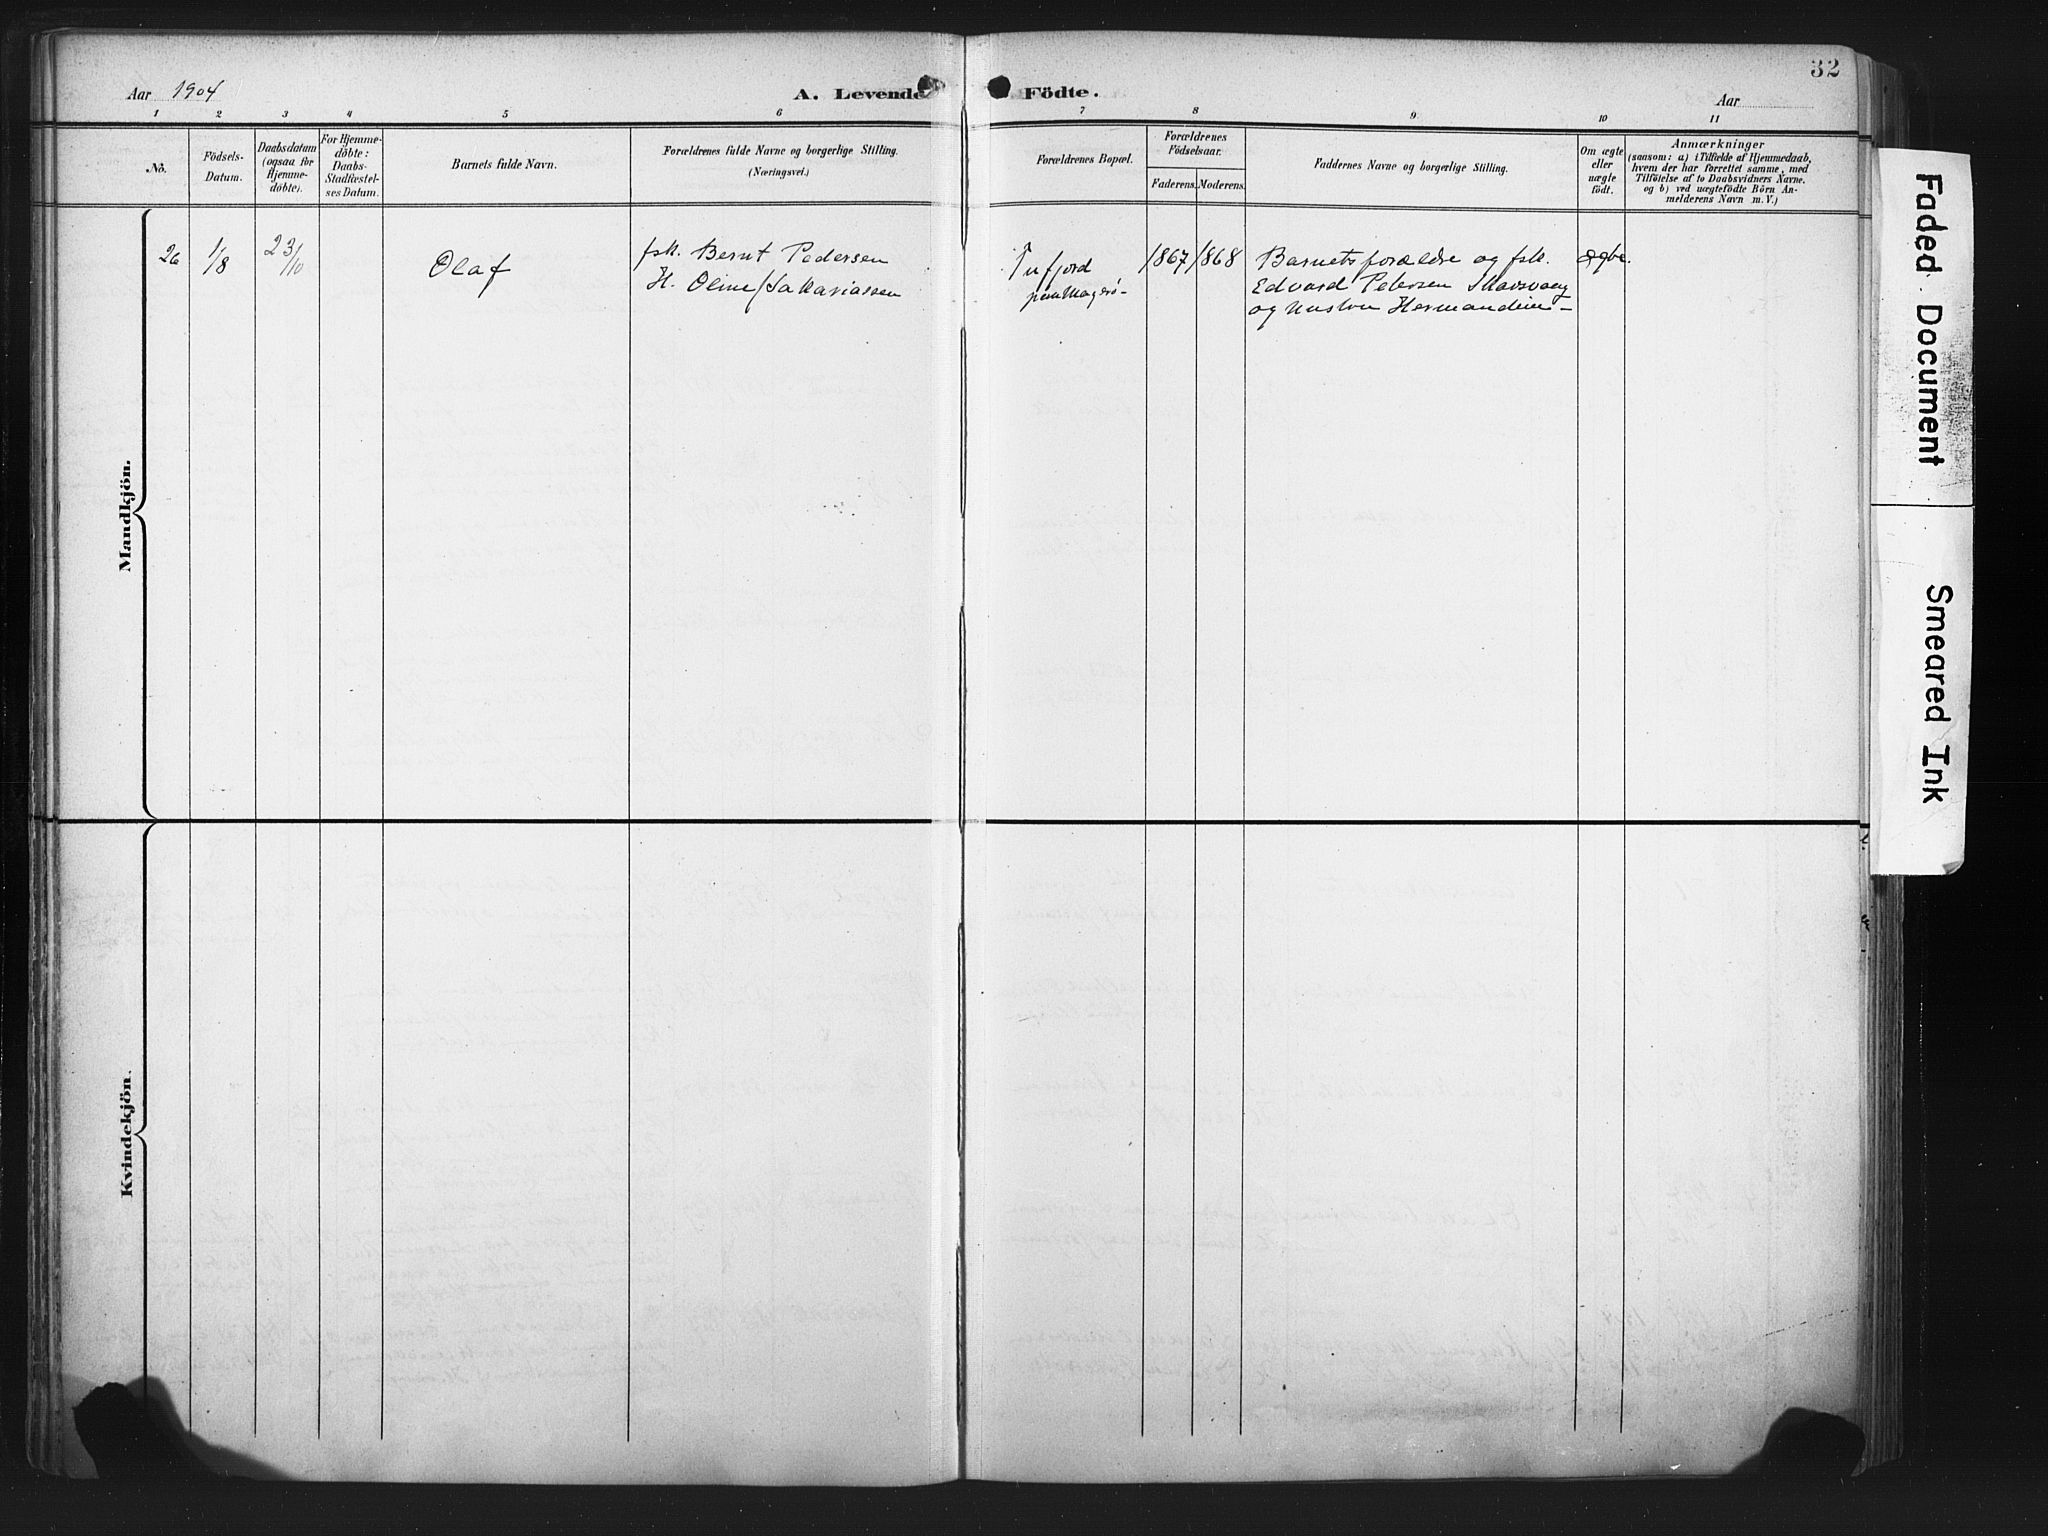 32
Aar 1904
A. Levende Födte.
Aar
1 2 3 4 5 6 7 8 9 10 11
No.
Födsels-
Datum.
Daabsdatum
(ogsaa for
Hjemme-
döbte).
For Hjemme-
döbte:
Daabs-
Stadfæstel-
ses Datum.
Barnets fulde Navn.
Forældrenes fulde Navne og borgerlige Stilling.
(Næringsvei.)
Forældrenes Bopæl.
Forældrenes
Födselsaar.
Faderens. Moderens.
Faddernes Navne og borgerlige Stilling.
Om ægte
eller
uægte
födt.
Anmærkninger
(saasom: a) i Tilfælde af Hjemmedaab,
hvem der har forrettet samme, med
Tilföielse af to Daabsvidners Navne.
og b) ved uægtefödte Börn An-
melderens Navn m. V.)
Mandkjön.
26
1/8
23/10
Olaf
fsk. Bernt Pedersen
H. Oline Sakariassen
Tufjord
paa Magerö-
1867 1868
Barnets forældre og fsk.
Edvard Petersen Skarsvaag
og hustru
ægte.
Kvindekjön.
Faded Document
Smeared Ink